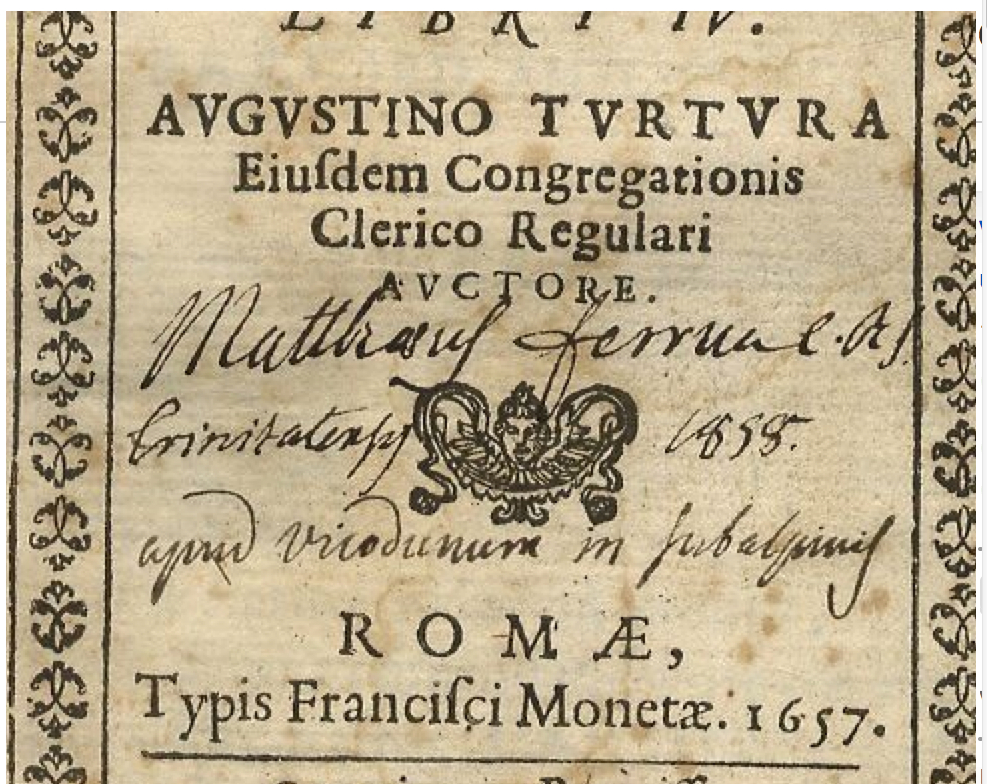 LIBRI IV.
AVGVSTINO TVRTVRA
Eiuſdem Congregationis
Clerico Regulari
AVCTORE.
Matthæus Ferrua C.R.S.
trinitatensis 1858.
apud vicodunum in subalpinis
ROMÆ,
Typis Franciſci Monetæ. 1657.